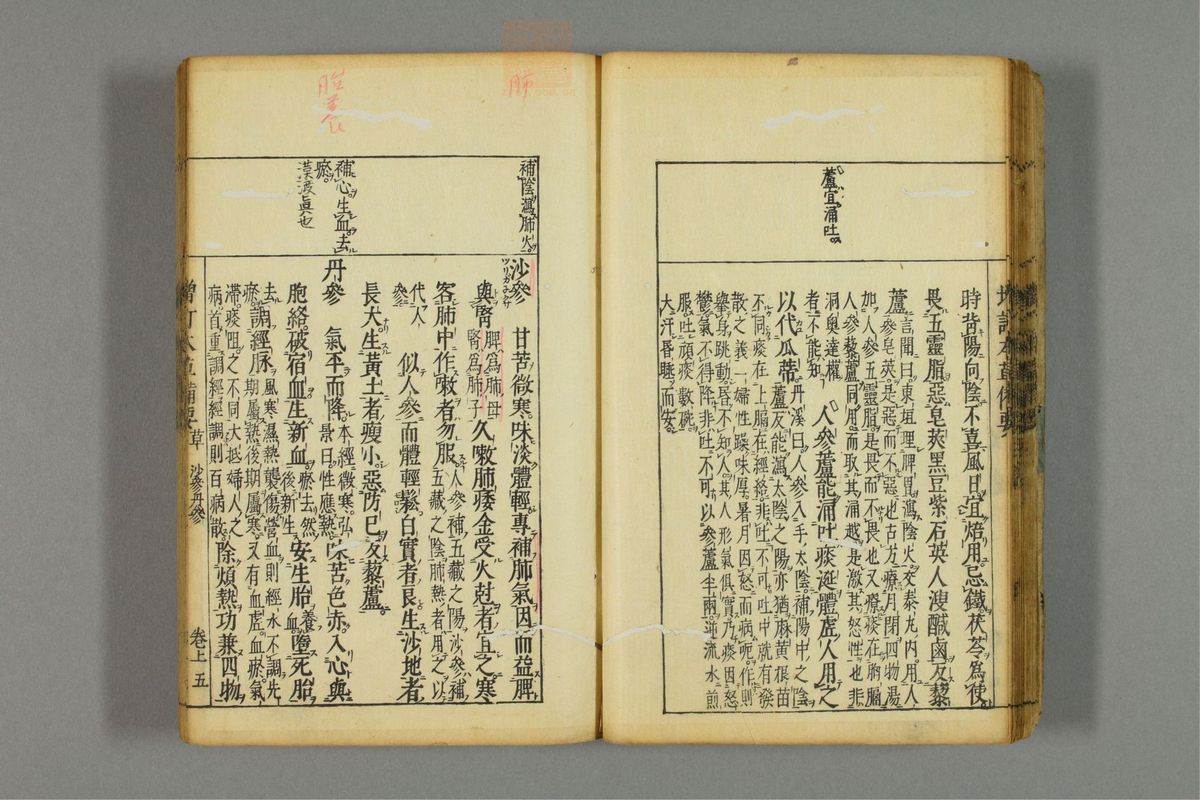 蘆宜涌吐
時背陽向陰不喜風日宜焙用忌鐵茯苓為使
畏五靈脂惡皂莢黑豆紫石英人溲鹹鹵反藜
蘆言聞曰東垣理脾胃瀉陰火交泰丸內用人
參皂莢是惡而不惡也古方療月閉四物湯
加人參五靈脂是畏而不畏也又療痰在胸膈
人參藜蘆同用而取其涌越是激其怒性也非
洞奧達權
者不能知 人參蘆能涌吐痰涎體虛人用之
以代瓜蒂丹溪曰人參入手太陰補陽中之陰
蘆反能瀉太陰之陽亦猶麻黃根苗
不同痰在上膈在經絡非吐不可吐中就有發
散之義一婦性躁味厚暑月因怒而病呃作則
舉身跳動昏不知人其人形氣俱實乃痰因怒
鬱氣不得降非吐不可以參蘆半兩逆流水煎
服吐頑痰數碗
大汗昏睡而安
肺
胎養
補陰瀉肺火
補心生血去
瘀
沙參 甘苦微寒味淡體輕專補肺氣因而益脾
ツリガネニンジン
與腎脾為肺母
腎為肺子久嗽肺痿金受火尅者宜之寒
客肺中作嗽者勿服人參補五藏之陽沙參補
五藏之陰肺熱者用之以
代人
參 似人參而體輕鬆白實者良生沙地者
長大生黃土者瘦小惡防已反藜蘆
丹參 氣平而降本經微寒弘
景曰性應熱味苦色赤入心與
胞絡破宿血生新血瘀去然
後新生安生胎養
血墮死胎
去
瘀調經脉風寒濕熱襲傷營血則經水不調先
期屬熱後期屬寒又有血虛血瘀氣
滯痰阻之不同大抵婦人之
病首重調經經調則百病散除煩熱功兼四物
增訂本草備要 草 沙參丹參 卷上 五